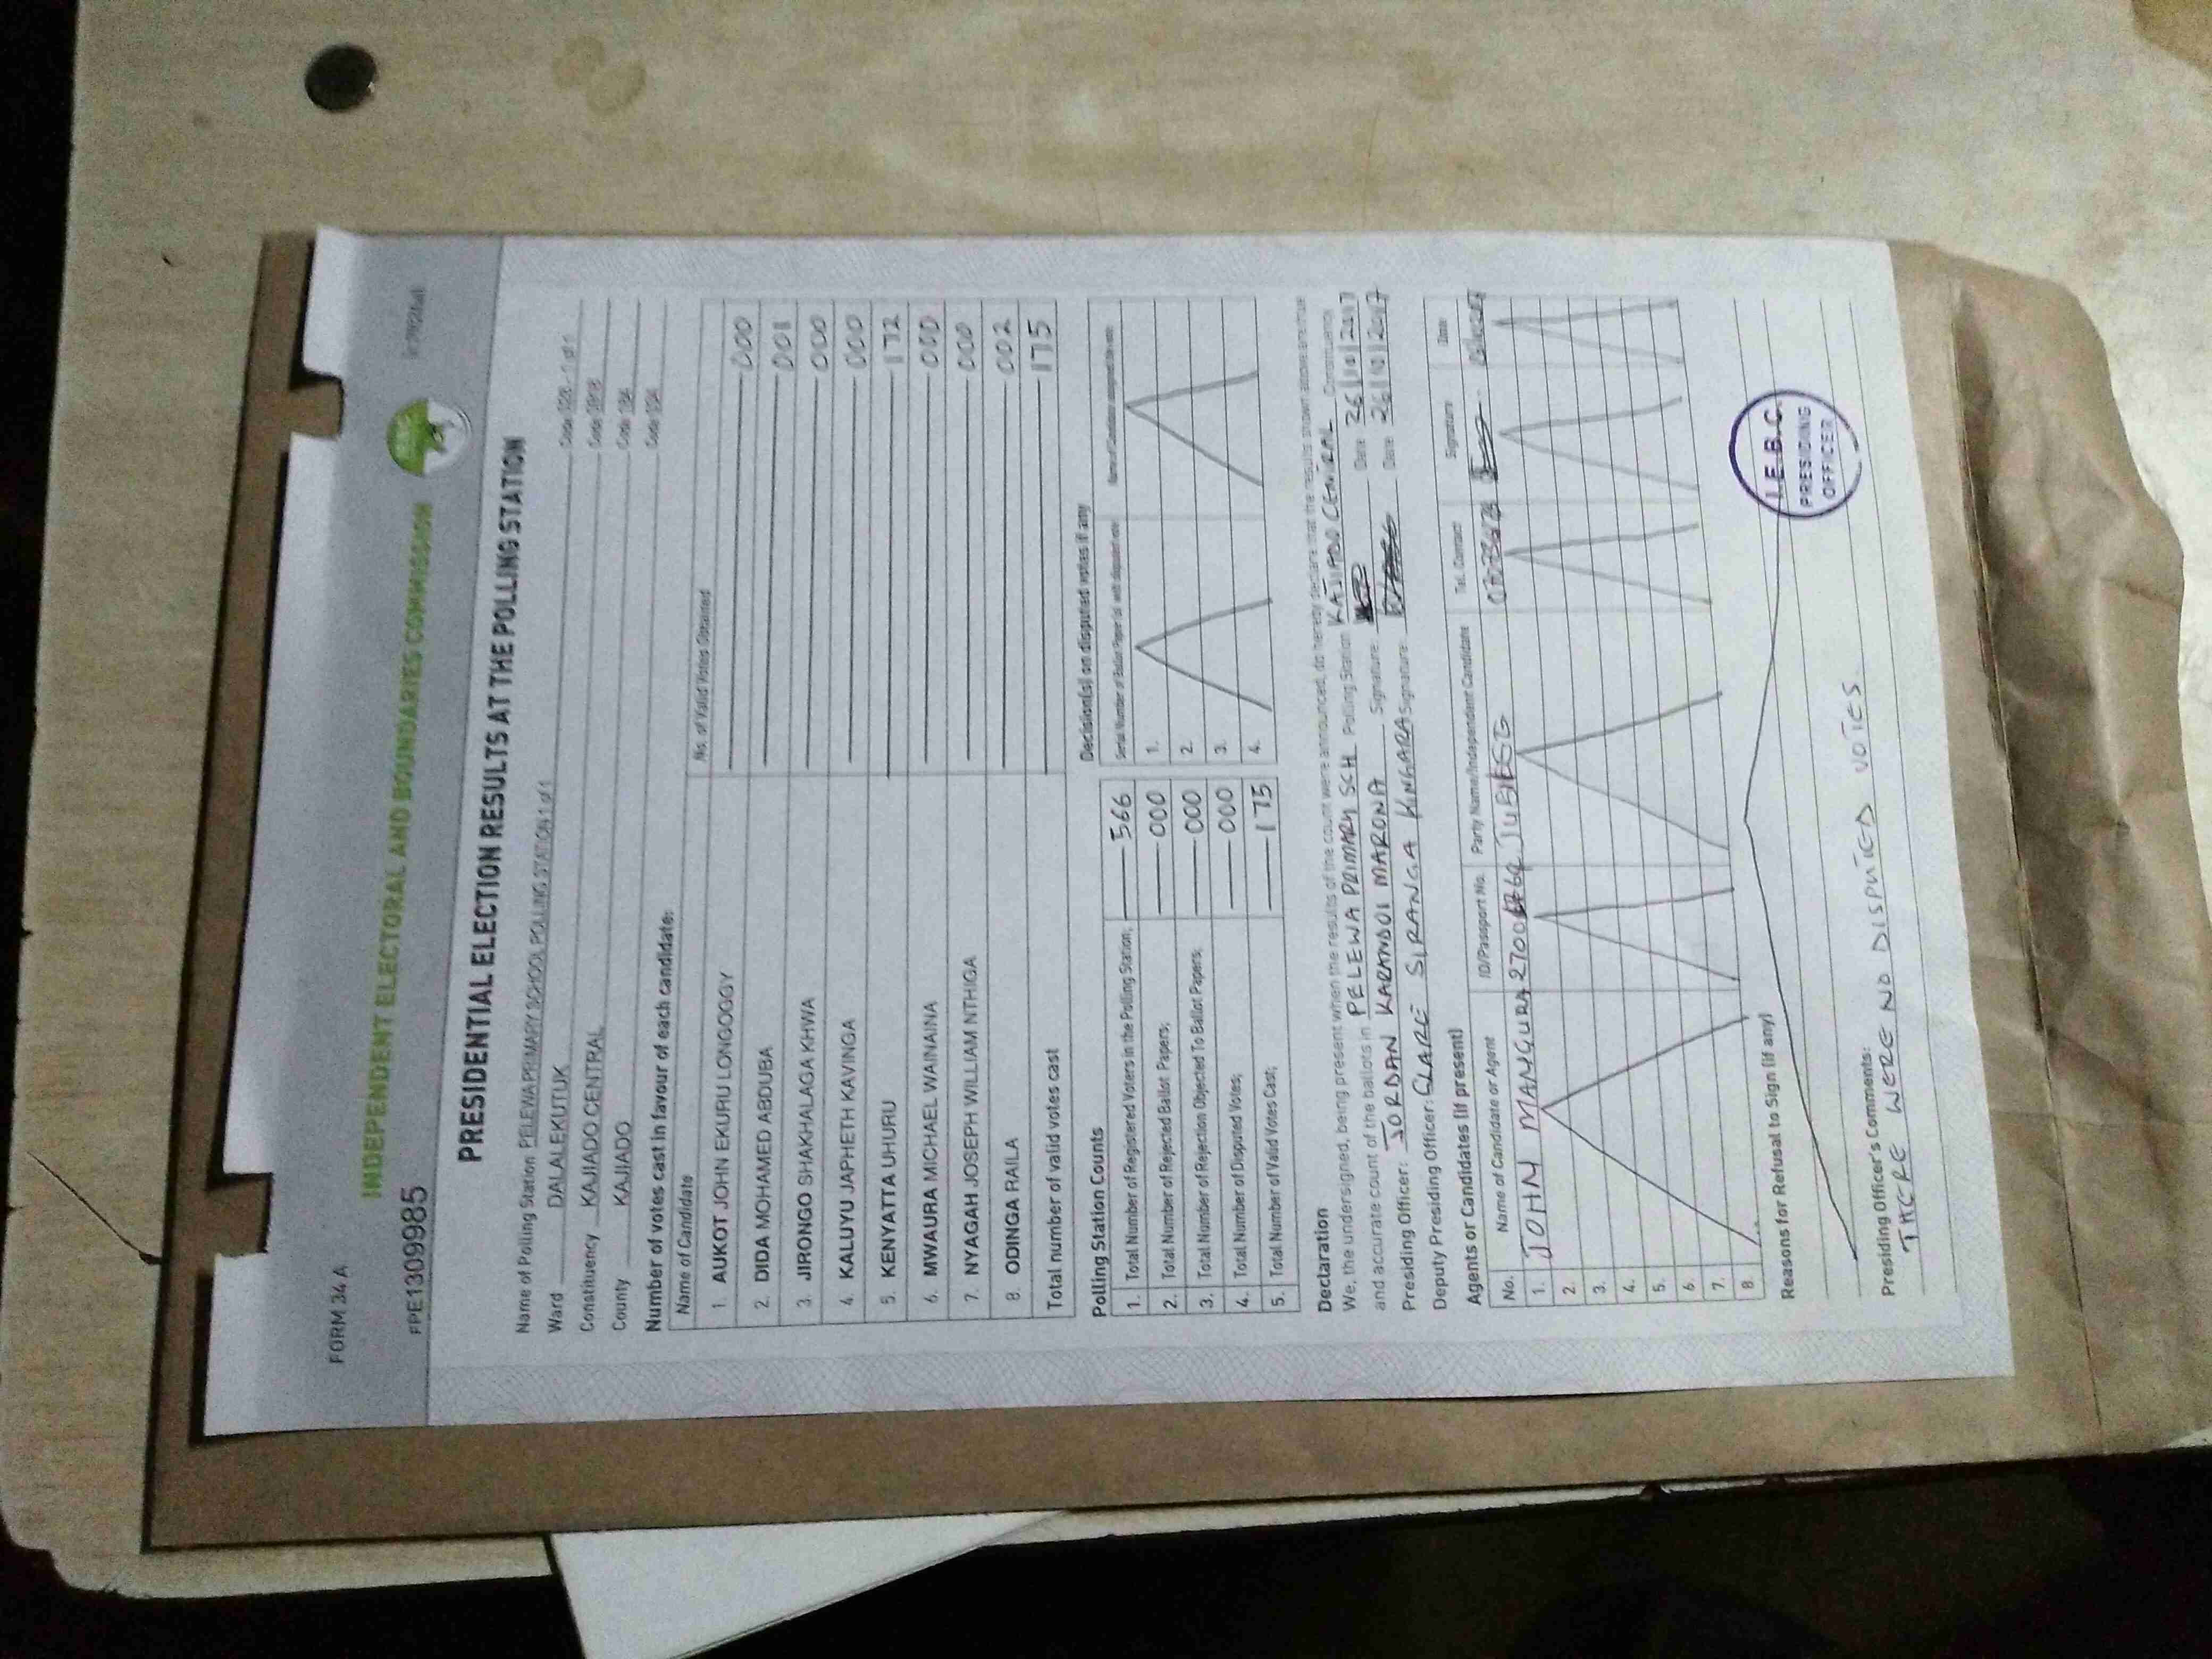 FORM 34 A
INDEPENDENT ELECTORAL AND BOUNDARIES COMMISSION
FPE1309985
PRESIDENTIAL ELECTION RESULTS AT THE POLLING STATION
Name of Polling Station PELEWA PRIMARY SCHOOL POLLING STATION 1 of 1 Code
Ward DALALEKUTUK Code
Constituency KAJIADO CENTRAL Code 184
County KAJIADO Code
Number of votes cast in favour of each candidate:
Name of Candidate No. of Valid Votes Obtained
1. AUKOT JOHN EKURU LONGOGGY 000
2. DIDA MOHAMED ABDUBA 001
3. JIRONGO SHAKHALAGA KHWA 000
4. KALUYU JAPHETH KAVINGA 000
5. KENYATTA UHURU 172
6. MWAURA MICHAEL WAINAINA 000
7. NYAGAH JOSEPH WILLIAM NTHIGA 000
8. ODINGA RAILA 002
Total number of valid votes cast 175
Polling Station Counts
1. Total Number of Registered Voters in the Polling Station; 566
2. Total Number of Rejected Ballot Papers; 000
3. Total Number of Rejection Objected To Ballot Papers; 000
4. Total Number of Disputed Votes; 000
5. Total Number of Valid Votes Cast; 175
Decision(s) on disputed votes if any
Serial Number of Ballot Paper (s) with disputed vote
1.
2.
3.
4.
Declaration
We, the undersigned, being present when the results of the count were announced, do hereby declare that the results shown above are true
and accurate count of the ballots in PELEWA PRIMARY SCH Polling Station KAJIADO CENTRAL Constituency
Presiding Officer: JORDAN KARANDI MARONA Signature: Date 26/10/2017
Deputy Presiding Officer: CLARE SIRANGA KINGARA Signature: Date 26/10/2017
Agents or Candidates (if present)
No. Name of Candidate or Agent ID/Passport No. Party Name/Independent Candidate Tel. Contact Signature Date
1. JOHN MANGURA
2.
3.
4.
5.
6.
7.
8.
Reasons for Refusal to Sign (if any)
I.E.B.C.
PRESIDING
OFFICER
Presiding Officer's Comments:
THERE WERE NO DISPUTED VOTES